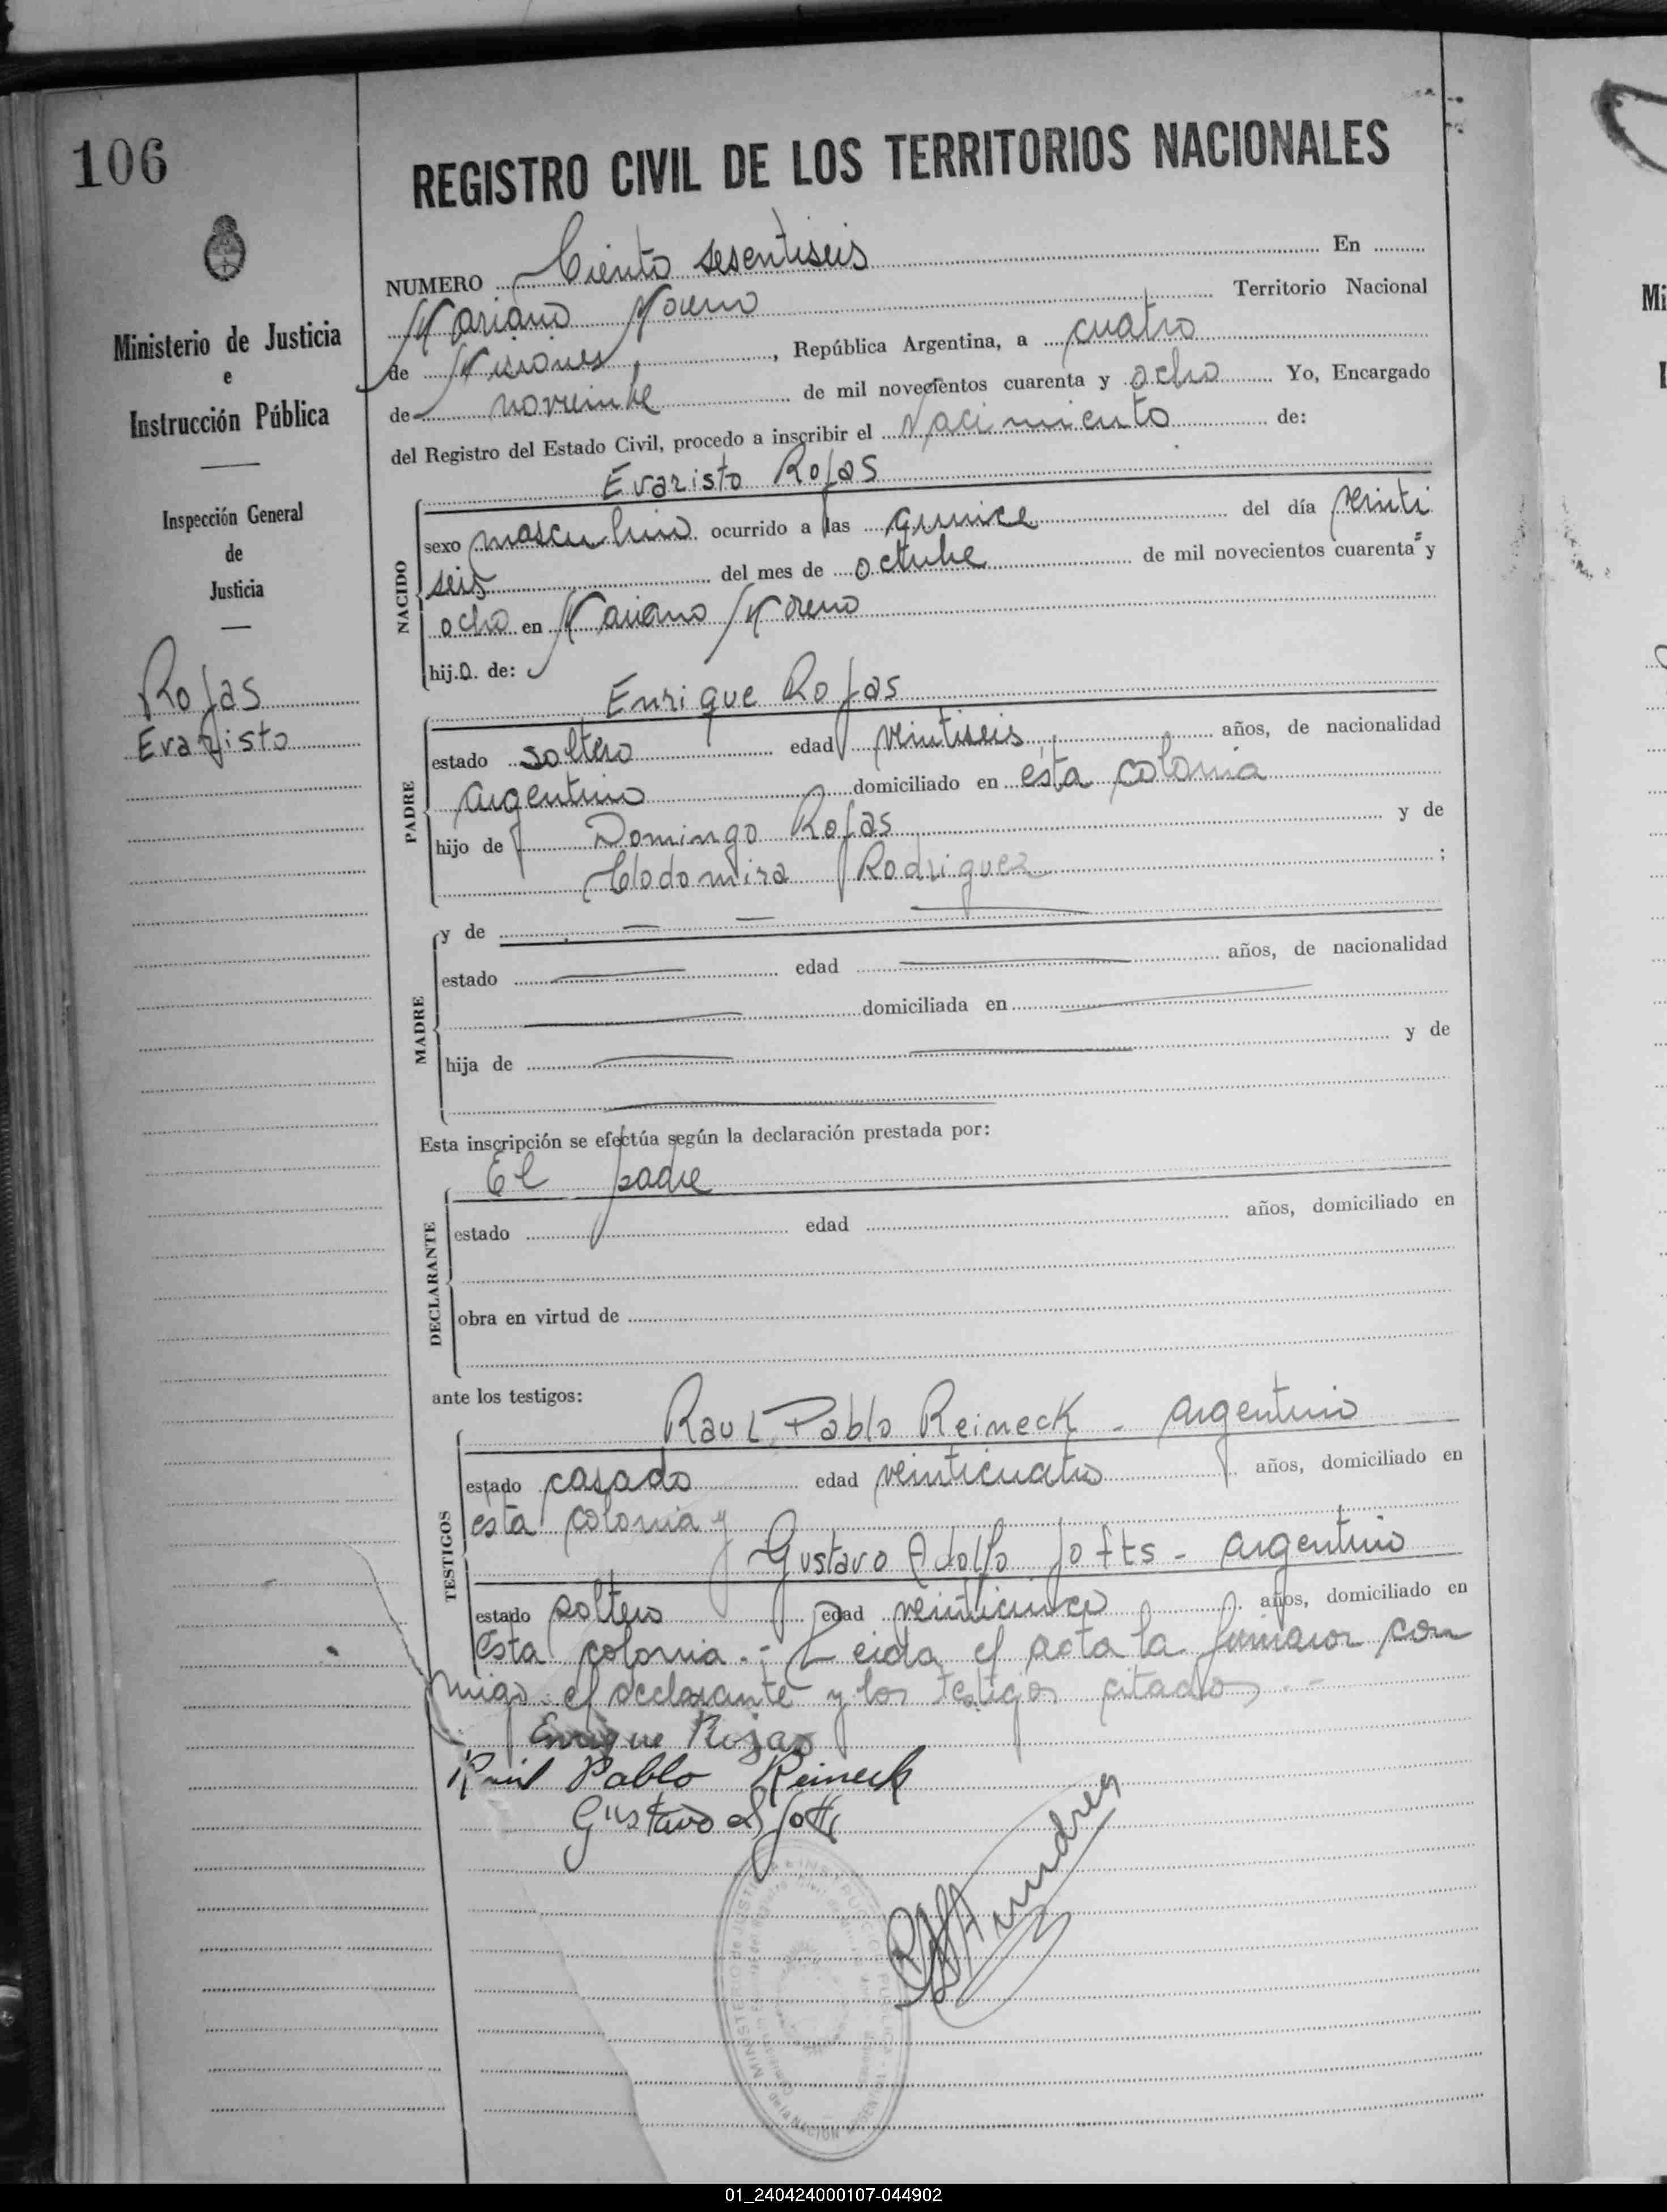 106
REGISTRO CIVIL DE LOS TERRITORIOS NACIONALES
Ministerio de Justicia
e
Instrucción Pública
Inspección General
de
Justicia
Rojas
Evaristo
NUMERO Ciento sesentiseis En
Mariano Moreno Territorio Nacional
de Misiones, República Argentina, a cuatro
de noviembre de mil novecientos cuarenta y ocho Yo, Encargado
del Registro del Estado Civil, procedo a inscribir el Nacimiento de:
Evaristo Rojas
NACIDO
sexo masculino ocurrido a las quince del día veinti
seis del mes de octubre de mil novecientos cuarenta y
ocho en Mariano Moreno
hij.o. de:
Enrique Rojas
PADRE
estado soltero edad veintiseis años, de nacionalidad
argentino domiciliado en esta colonia
hijo de Domingo Rojas y de
Clodomira Rodriguez ;
MADRE
y de
estado edad años, de nacionalidad
domiciliada en
hija de y de
Esta inscripción se efectúa según la declaración prestada por:
El padre
DECLARANTE
estado edad años, domiciliado en
obra en virtud de
ante los testigos:
Raul Pablo Reineck - argentino
TESTIGOS
estado casado edad veinticuatro años, domiciliado en
esta colonia y
Gustavo Adolfo Jofts - argentino
estado soltero edad veinticinco años, domiciliado en
esta colonia.- Leida el acta la firmaron con
migo el declarante y los testigos citados.-
Enrique Rojas
Raúl Pablo Reineck
Gustavo A
01_240424000107-044902